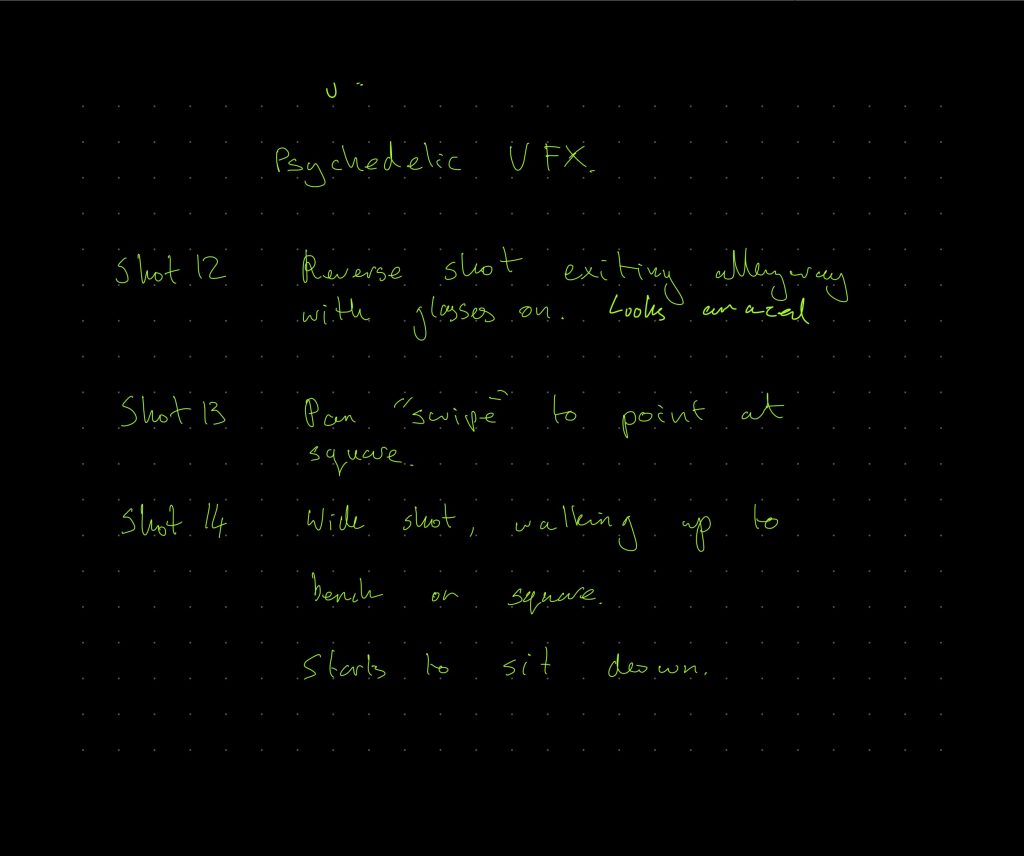 Psychedelic VFX.
Shot 12 Reverse shot exiting alleyway
with glasses on. Looks amazed
Shot 13 Pan "swipe" to point at
square.
Shot 14 Wide shot, walking up to
bench on square.
Starts to sit down.